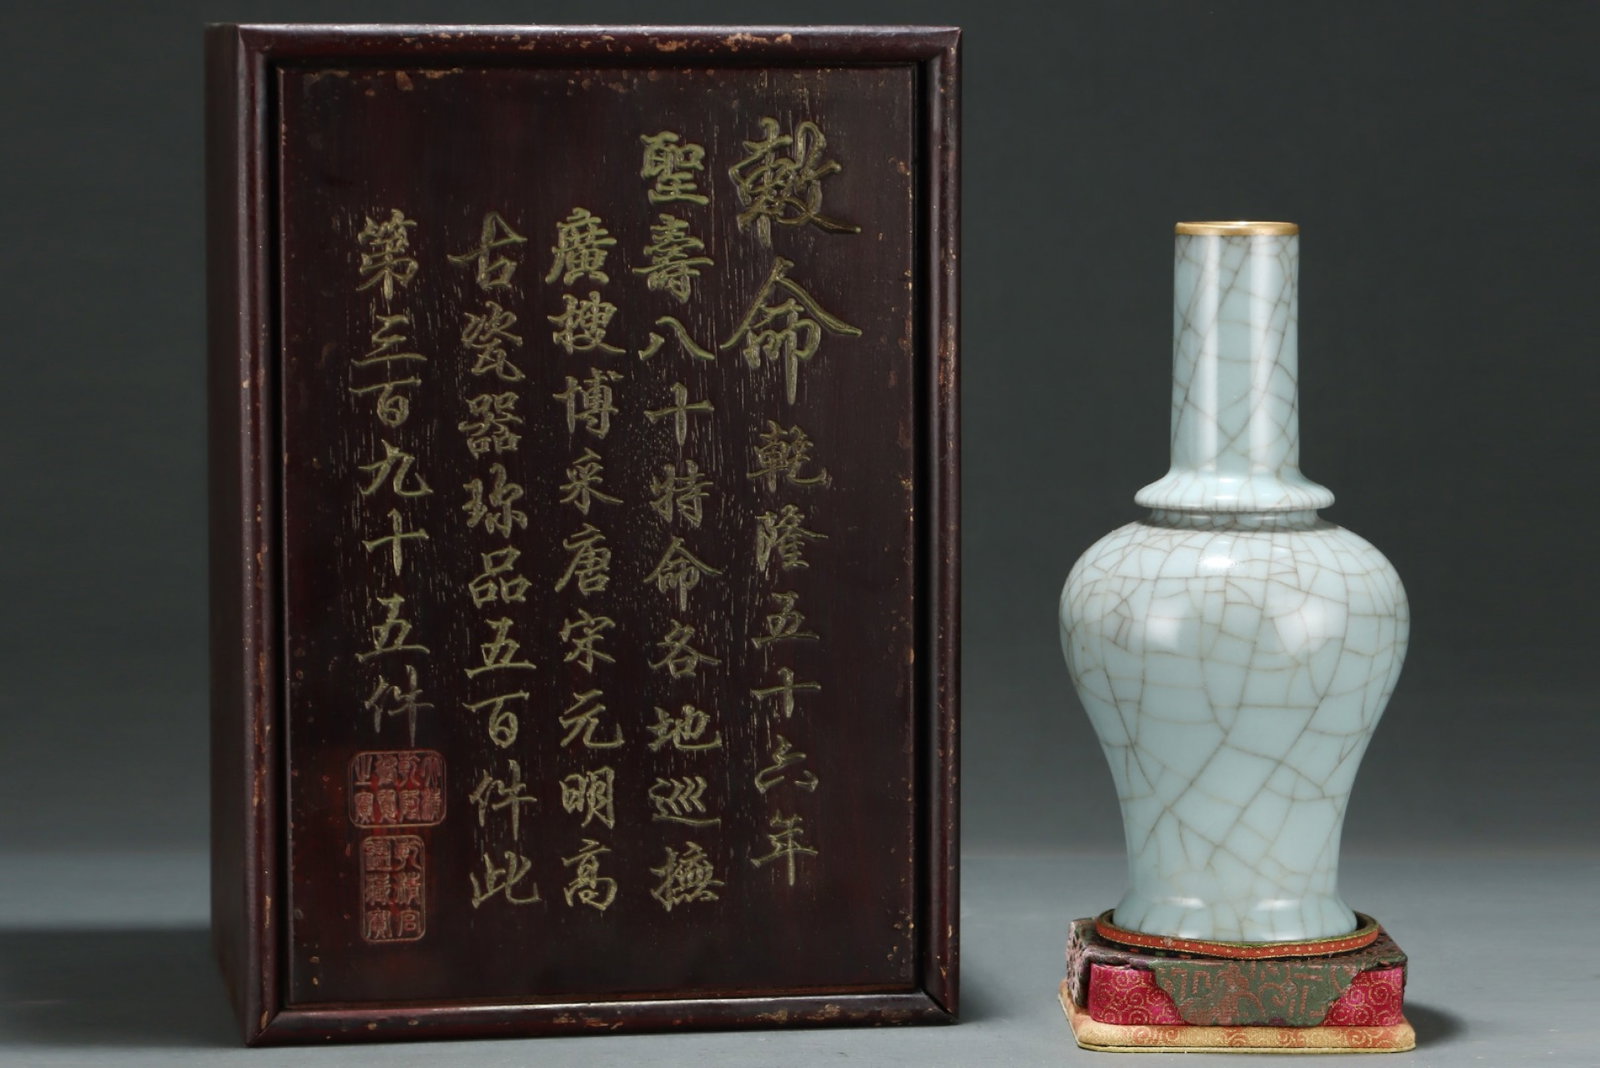 敕命乾隆五十六年
聖壽八十特命各地巡撫
廣搜博采唐宋元明高
古瓷器珎品五百件此
第三百九十五件